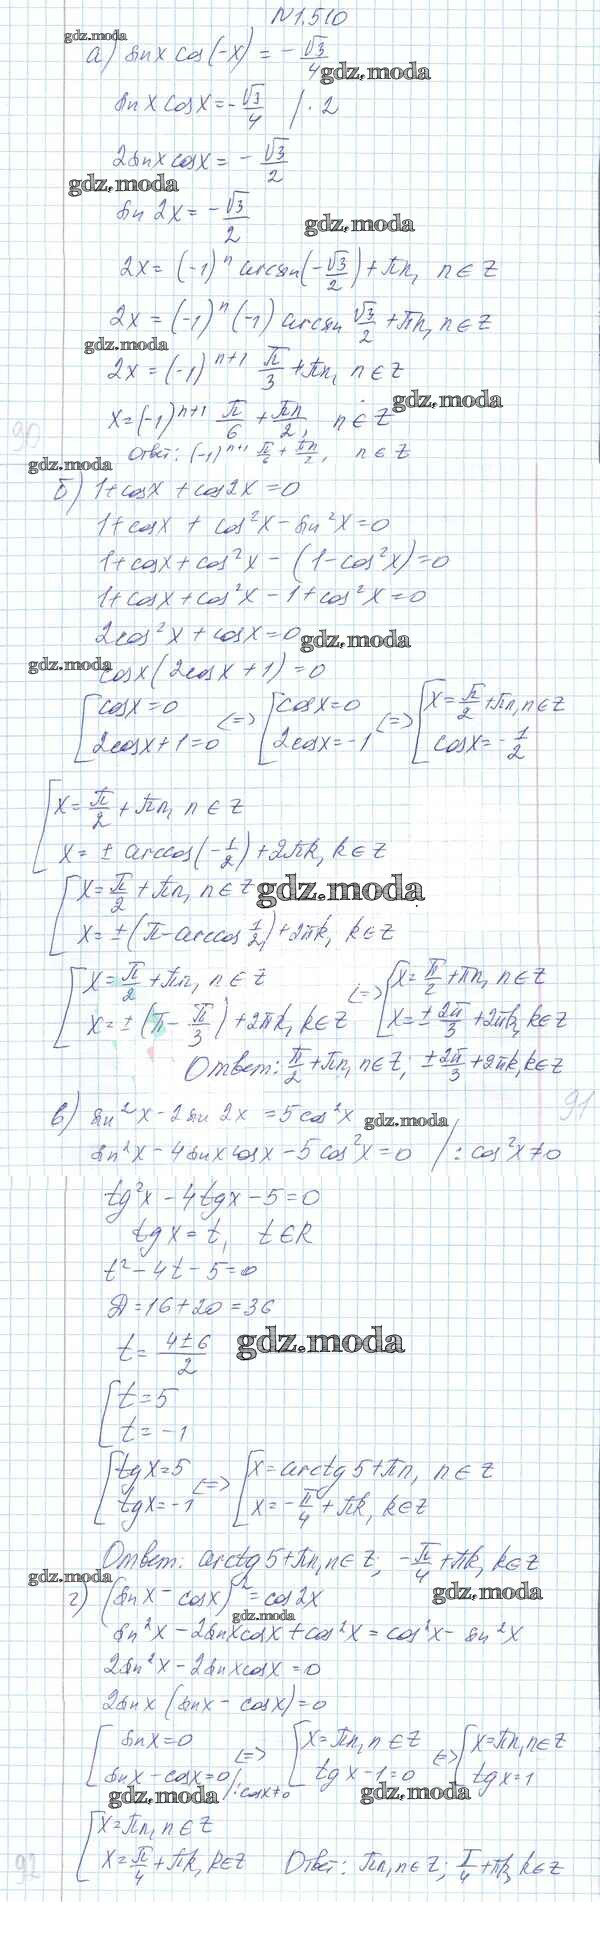 N1.510
gdz.moda
а) sin x cos(-x) = - √3/4
gdz.moda
sin x cos x = - √3/4 | · 2
2 sin x cos x = - √3/2
gdz.moda
sin 2x = - √3/2
gdz.moda
2x = (-1)^n arcsin(- √3/2) + πn, n ∈ Z
2x = (-1)^n (-1) arcsin √3/2 + πn, n ∈ Z
gdz.moda
2x = (-1)^(n+1) π/3 + πn, n ∈ Z
gdz.moda
x = (-1)^(n+1) π/6 + πn/2, n ∈ Z
90
Ответ: (-1)^(n+1) π/6 + πn/2, n ∈ Z
gdz.moda
б) 1 + cos x + cos 2x = 0
1 + cos x + cos²x - sin²x = 0
1 + cos x + cos²x - (1 - cos²x) = 0
1 + cos x + cos²x - 1 + cos²x = 0
2cos²x + cos x = 0
gdz.moda
gdz.moda
cos x (2cos x + 1) = 0
[ cos x = 0 <=> [ cos x = 0 <=> [ x = π/2 + πn, n ∈ Z
2cos x + 1 = 0 2cos x = -1 cos x = - 1/2
[ x = π/2 + πn, n ∈ Z
x = ± arccos(- 1/2) + 2πk, k ∈ Z
[ x = π/2 + πn, n ∈ Z
gdz.moda
x = ± (π - arccos 1/2) + 2πk, k ∈ Z
[ x = π/2 + πn, n ∈ Z <=> [ x = π/2 + πn, n ∈ Z
x = ± (π - π/3) + 2πk, k ∈ Z x = ± 2π/3 + 2πk, k ∈ Z
Ответ: π/2 + πn, n ∈ Z; ± 2π/3 + 2πk, k ∈ Z
91
в) sin²x - 2 sin 2x = 5cos²x
gdz.moda
sin²x - 4 sin x cos x - 5cos²x = 0 | : cos²x ≠ 0
tg²x - 4tg x - 5 = 0
tg x = t, t ∈ R
t² - 4t - 5 = 0
Д = 16 + 20 = 36
t = (4 ± 6)/2
gdz.moda
[ t = 5
t = -1
[ tg x = 5 <=> [ x = arctg 5 + πn, n ∈ Z
tg x = -1 x = - π/4 + πk, k ∈ Z
Ответ: arctg 5 + πn, n ∈ Z; - π/4 + πk, k ∈ Z
gdz.moda
г) (sin x - cos x)² = cos 2x
gdz.moda
gdz.moda
sin²x - 2 sin x cos x + cos²x = cos²x - sin²x
2 sin²x - 2 sin x cos x = 0
2 sin x (sin x - cos x) = 0
[ sin x = 0 <=> [ x = πn, n ∈ Z <=> [ x = πn, n ∈ Z
sin x - cos x = 0 | : cos x ≠ 0 tg x - 1 = 0 tg x = 1
gdz.moda
gdz.moda
[ x = πn, n ∈ Z
x = π/4 + πk, k ∈ Z Ответ: πn, n ∈ Z; π/4 + πk, k ∈ Z
92